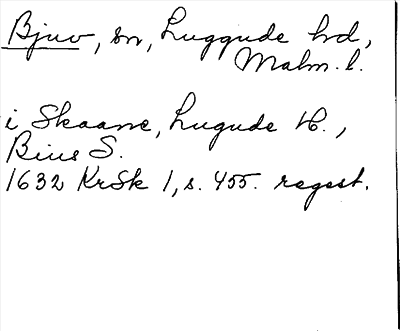 Bjuv, sn, Luggude hrd,
Malm. l.
i Skaane, Lugude H.,
Bius S.
1632 KrSk 1, s. 455. regest.